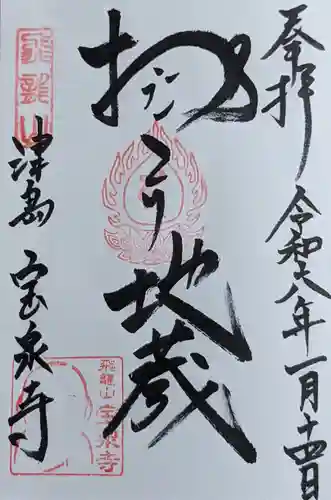 奉拝 令和八年一月十四日
おこり地蔵
飛龍山
津島 宝泉寺
飛龍山
宝泉寺